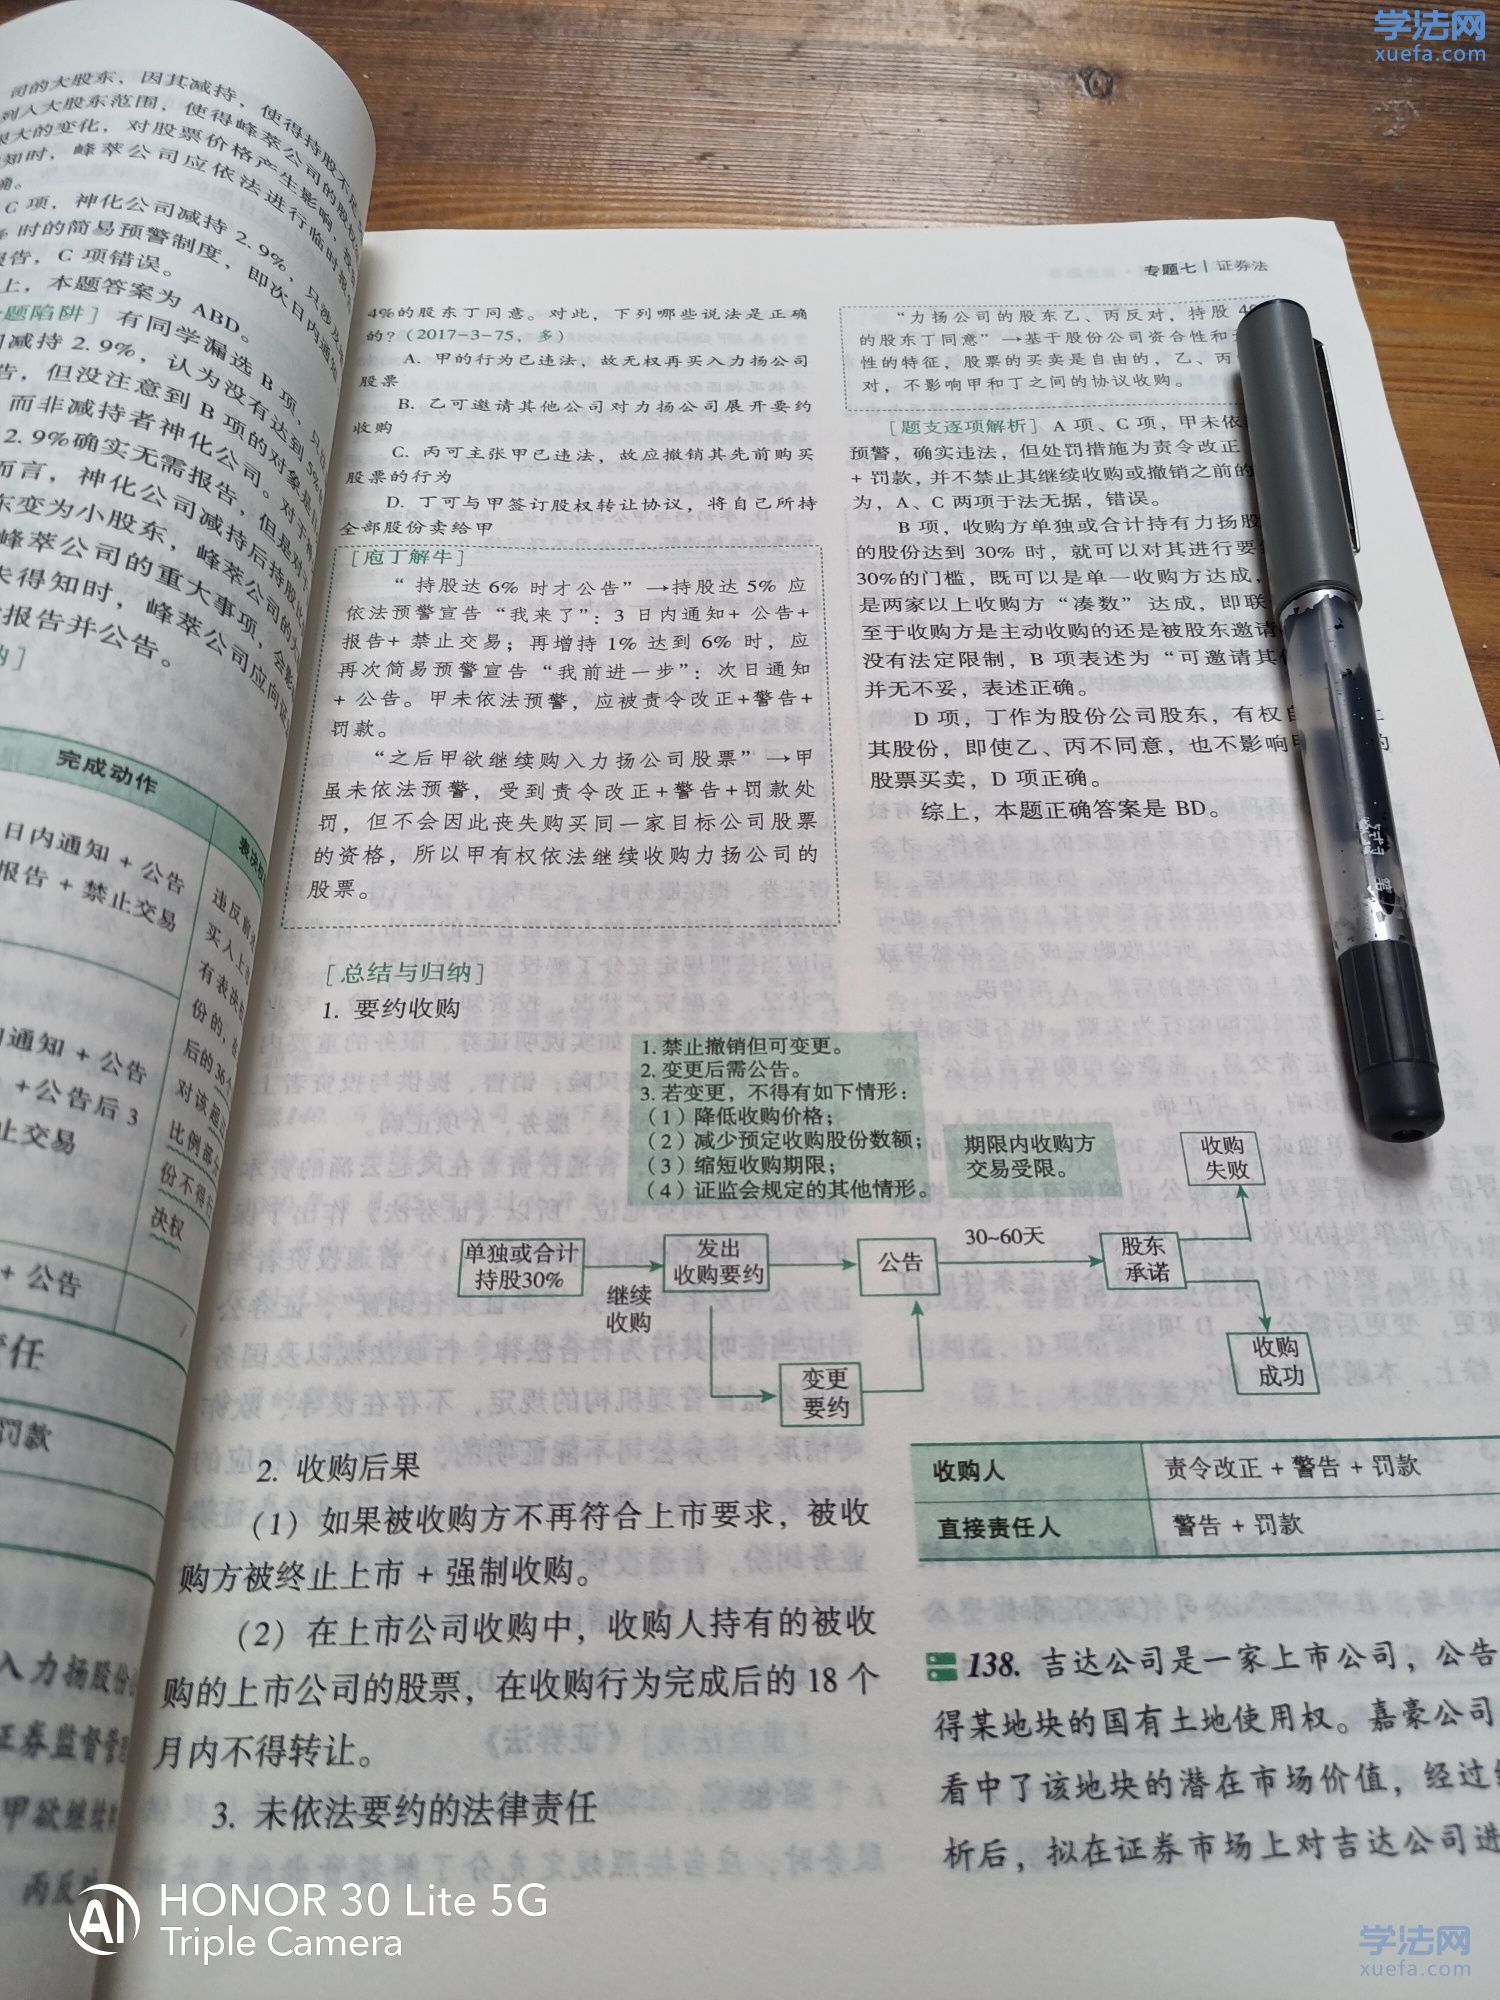 学法网
xuefa.com
司的大股东，因其减持，使得持股不足
列入大股东范围，使得峰萃公司的股权
很大的变化，对股票价格产生影响，投资
知时，峰萃公司应依法进行临时报告
确。
C 项，神化公司减持 2.9%，只涉及
时的简易预警制度，即次日内通知
报告，C 项错误。
上，本题答案为 ABD。
题陷阱］有同学漏选 B 项，只
减持 2.9%，认为没有达到 5%
告，但没注意到 B 项的对象是
而非减持者神化公司。对于
2.9%确实无需报告，但是对于
而言，神化公司减持后持股比
东变为小股东，峰萃公司的大
峰萃公司的重大事项，会影
未得知时，峰萃公司应向证
报告并公告。
纳］
完成动作
表决权
日内通知 + 公告
报告 + 禁止交易
通知 + 公告
+ 公告后 3
止交易
+ 公告
违反前
买入上
有表决
份的，在
后的36个
对该超
比例部分
份不得行
决权
责任
罚款
入力扬股份
证券监督管理
甲欲继续
丙反
专题七 | 证券法
4%的股东丁同意。对此，下列哪些说法是正确
的？(2017-3-75，多)
A. 甲的行为已违法，故无权再买入力扬公司
股票
B. 乙可邀请其他公司对力扬公司展开要约
收购
C. 丙可主张甲已违法，故应撤销其先前购买
股票的行为
D. 丁可与甲签订股权转让协议，将自己所持
全部股份卖给甲
［庖丁解牛］
“持股达 6% 时才公告”→持股达 5% 应
依法预警宣告“我来了”：3 日内通知+ 公告+
报告+ 禁止交易；再增持 1% 达到 6% 时，应
再次简易预警宣告“我前进一步”：次日通知
+ 公告。甲未依法预警，应被责令改正+警告+
罚款。
“之后甲欲继续购入力扬公司股票”→甲
虽未依法预警，受到责令改正+警告+罚款处
罚，但不会因此丧失购买同一家目标公司股票
的资格，所以甲有权依法继续收购力扬公司的
股票。
“力扬公司的股东乙、丙反对，持股 4%
的股东丁同意”→基于股份公司资合性和开
性的特征，股票的买卖是自由的，乙、丙
对，不影响甲和丁之间的协议收购。
［题支逐项解析］A 项、C 项，甲未依
预警，确实违法，但处罚措施为责令改正
+ 罚款，并不禁止其继续收购或撤销之前的
为，A、C 两项于法无据，错误。
B 项，收购方单独或合计持有力扬股
的股份达到 30% 时，就可以对其进行要
30%的门槛，既可以是单一收购方达成，
是两家以上收购方“凑数”达成，即联
至于收购方是主动收购的还是被股东邀请
没有法定限制，B 项表述为“可邀请其
并无不妥，表述正确。
D 项，丁作为股份公司股东，有权自
其股份，即使乙、丙不同意，也不影响甲 的
股票买卖，D 项正确。
综上，本题正确答案是 BD。
［总结与归纳］
1. 要约收购
1. 禁止撤销但可变更。
2. 变更后需公告。
3. 若变更，不得有如下情形：
（1）降低收购价格；
（2）减少预定收购股份数额；
（3）缩短收购期限；
（4）证监会规定的其他情形。
期限内收购方
交易受限。
收购
失败
单独或合计
持股30%
继续
收购
发出
收购要约
公告
30~60天
股东
承诺
变更
要约
收购
成功
2. 收购后果
（1）如果被收购方不再符合上市要求，被收
购方被终止上市 + 强制收购。
（2）在上市公司收购中，收购人持有的被收
购的上市公司的股票，在收购行为完成后的 18 个
月内不得转让。
3. 未依法要约的法律责任
收购人 责令改正 + 警告 + 罚款
直接责任人 警告 + 罚款
138. 吉达公司是一家上市公司，公告
得某地块的国有土地使用权。嘉豪公司
看中了该地块的潜在市场价值，经过
析后，拟在证券市场上对吉达公司进
AI HONOR 30 Lite 5G
Triple Camera
学法网
xuefa.com